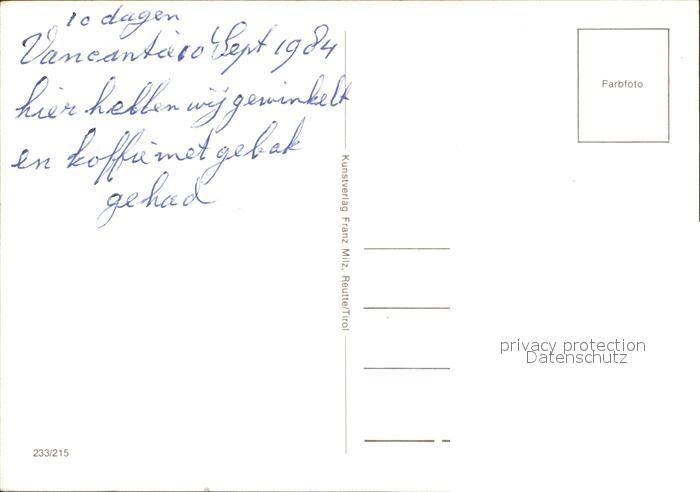 10 dagen
Vancantie 10 Sept 1984
hier hebben wij gewinkelt
en koffie met gebak
gehad
Farbfoto
Kunstverlag Franz Milz, Reutte/Tirol
privacy protection
Datenschutz
233/215